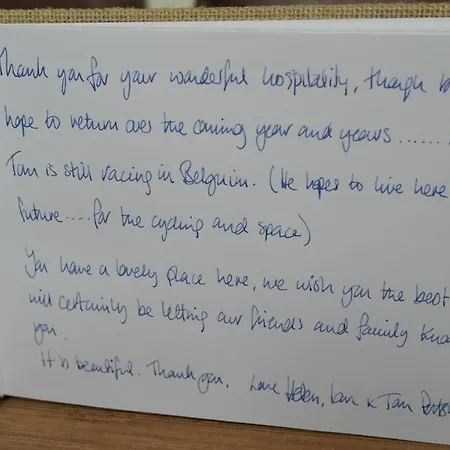 Thank you for your wonderful hospitality, though
hope to return over the coming year and years.......
Tom is still racing in Belguim. (He hopes to live here
future.....for the cycling and space)
You have a lovely place here, we wish you the best
will certainly be letting our friends and family know
you.
It is beautiful. Thank you. Love Helen, Ian & Tom